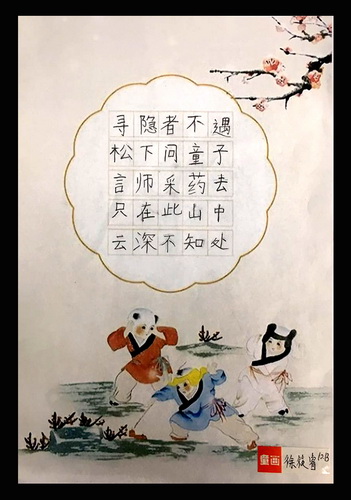 寻隐者不遇
松下问童子
言师采药去
只在此山中
云深不知处
童画
徐筱睿 128